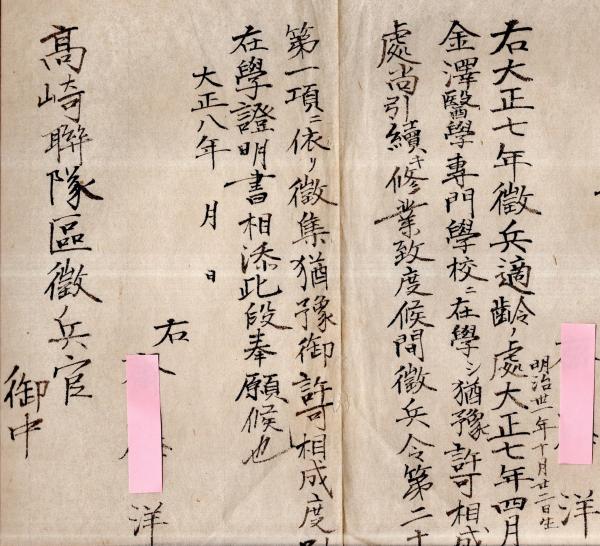 洋
明治卅一年十月廿二日生
右大正七年徴兵適齢ノ處大正七年四月
金澤醫學專門學校ニ在學シ猶豫許可相成
處尚引續キ修業致度候間徴兵令第二十
第一項ニ依リ徴集猶豫御許可相成度別
在學證明書相添此段奉願候也
大正八年 月 日
右
洋
高崎聯隊區徴兵官
御中